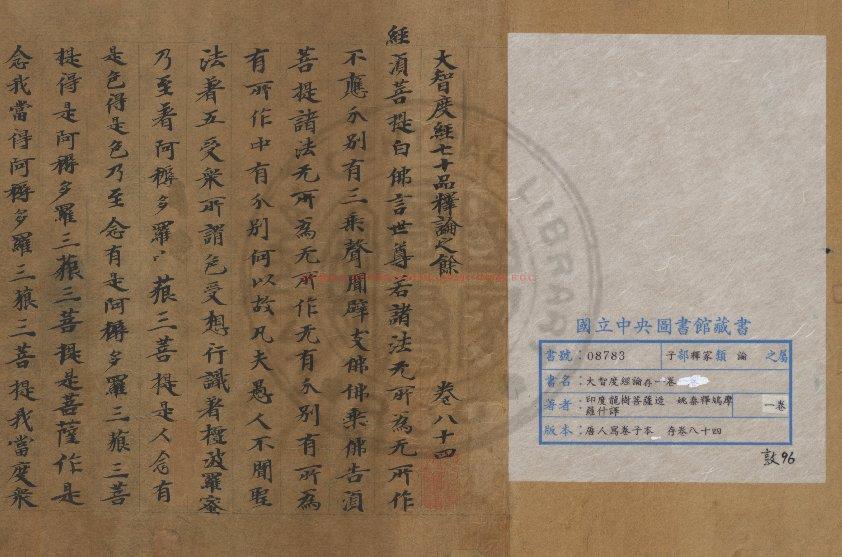 大智度經七十品釋論之餘 卷八十四
經湏菩提白佛言世尊若諸法无所為无所作
不應分別有三乘聲聞辟支佛佛乘佛告湏
菩提諸法无所為无所作无有分別有所為
有所作中有分別何以故凡夫愚人不聞聖
法著五受衆所謂色受想行識著檀波羅蜜
乃至著阿耨多羅三藐三菩提是人念有
是色得是色乃至念有是阿耨多羅三藐三菩
提得是阿耨多羅三藐三菩提是菩薩作是
念我當得阿耨多羅三藐三菩提我當度衆
國立中央圖書館藏書
書號：08783 子部釋家類 論 之屬
書名：大智度經論存一卷
著者：印度龍樹菩薩造 姚秦釋鳩摩羅什譯 一卷
版本：唐人寫卷子本 存卷八十四
敦96
LIBRARY